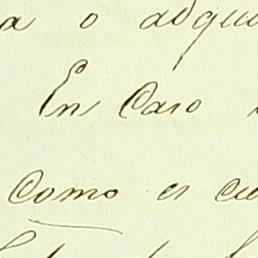 a o adqui
En Caso
Como es cu